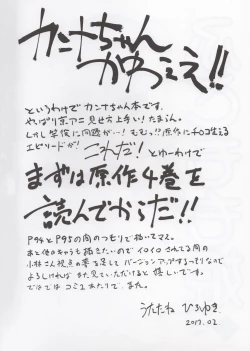 カンナちゃん
かわええ!!
というわけでカンナちゃん本です。
やっぱり京アニ見せ方上手い!たまらん。
しかし学校に問題が…!もむっ!?原作にチョコ生える
エピソードが!これだ!とゆーわけで
まずは原作4巻を
読んでからだ!!
P94とP95の間のつもりで描いてマス。
あと他のキャラも描きたいのでイロイロされてる間の
小林さん視点の夢を足してバージョンアップするつもりなので
よろしければまた見ていただけると嬉しいです。
ではではコミュあたりで。また。
うたたねひろゆき
2017.02.